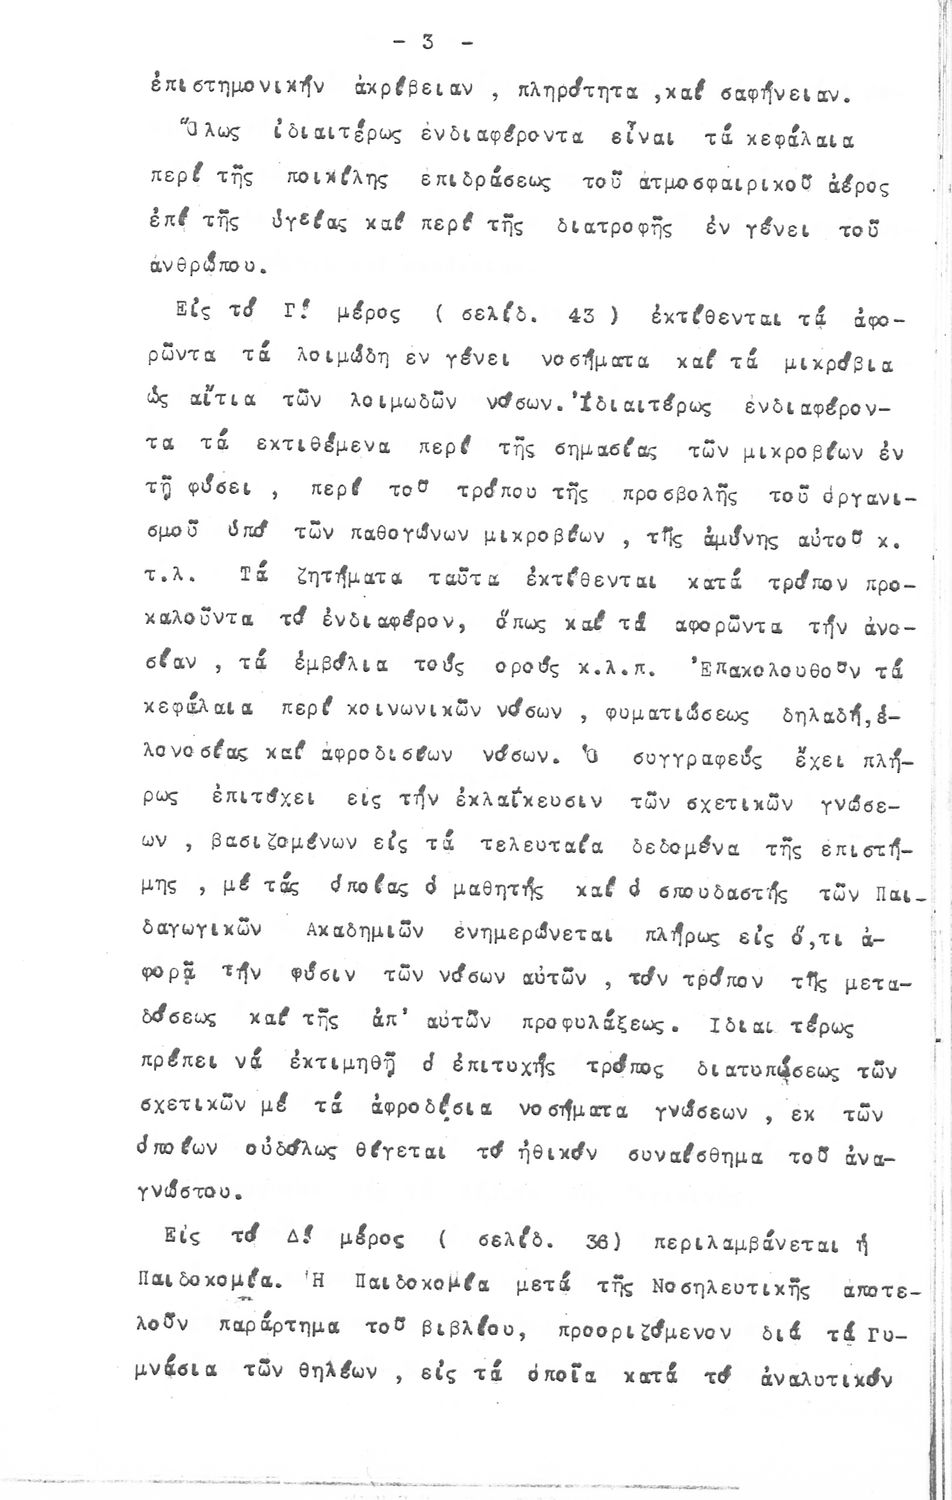 - 3 -
ἐπιστημονικήν ἀκρίβειαν , πληρότητα ,καί σαφήνειαν.
Ὅλως ἰδιαιτέρως ἐνδιαφέροντα εἶναι τά κεφάλαια
περί τῆς ποικίλης επιδράσεως τοῦ ἀτμοσφαιρικοῦ ἀέρος
ἐπί τῆς ὑγείας καί περί τῆς διατροφῆς ἐν γένει τοῦ
ἀνθρώπου.
Εἰς τό Γ! μέρος ( σελίδ. 43 ) ἐκτίθενται τά ἀφο-
ρῶντα τά λοιμώδη εν γένει νοσήματα καί τά μικρόβια
ὡς αἴτια τῶν λοιμωδῶν νόσων. Ἰδιαιτέρως ἐνδιαφέρον-
τα τά εκτιθέμενα περί τῆς σημασίας τῶν μικροβίων ἐν
τῇ φύσει , περί τοῦ τρόπου τῆς προσβολῆς τοῦ ὀργανι-
σμοῦ ὑπό τῶν παθογόνων μικροβίων , τῆς ἀμύνης αὐτοῦ κ.
τ.λ. Τά ζητήματα ταῦτα ἐκτίθενται κατά τρόπον προ-
καλοῦντα τό ἐνδιαφέρον, ὅπως καί τά αφορῶντα τήν ἀνο-
σίαν , τά ἐμβόλια τούς ορούς κ.λ.π. Ἐπακολουθοῦν τά
κεφάλαια περί κοινωνικῶν νόσων , φυματιώσεως δηλαδή,ἑ-
λονοσίας καί ἀφροδισίων νόσων. Ὁ συγγραφεύς ἔχει πλή-
ρως ἐπιτύχει εἰς τήν ἐκλαΐκευσιν τῶν σχετικῶν γνώσε-
ων , βασιζομένων εἰς τά τελευταῖα δεδομένα τῆς ἐπιστή-
μης , μέ τάς ὁποίας ὁ μαθητής καί ὁ σπουδαστής τῶν Παι-
δαγωγικῶν Ακαδημιῶν ἐνημερώνεται πλήρως εἰς ὅ,τι ἀ-
φορᾷ τήν φύσιν τῶν νόσων αὐτῶν , τόν τρόπον τῆς μετα-
δόσεως καί τῆς ἀπ' αὐτῶν προφυλάξεως. Ιδιαιτέρως
πρέπει νά ἐκτιμηθῇ ὁ ἐπιτυχής τρόπος διατυπώσεως τῶν
σχετικῶν μέ τά ἀφροδίσια νοσήματα γνώσεων , εκ τῶν
ὁποίων οὐδόλως θίγεται τό ἠθικόν συναίσθημα τοῦ ἀνα-
γνώστου.
Εἰς τό Δ! μέρος ( σελίδ. 36) περιλαμβάνεται ἡ
Παιδοκομία. Ἡ Παιδοκομία μετά τῆς Νοσηλευτικῆς ἀποτε-
λοῦν παράρτημα τοῦ βιβλίου, προοριζόμενον διά τά Γυ-
μνάσια τῶν θηλέων , εἰς τά ὁποῖα κατά τό ἀναλυτικόν